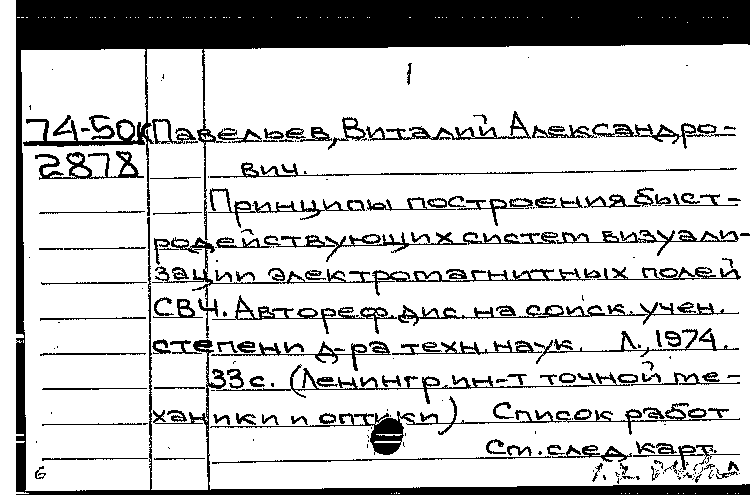 1
74-50к Павельев, Виталий Александро-
2878 вич.
Принципы построения быст-
родействующих систем визуали-
зации электромагнитных полей
СВЧ. Автореф. дис. на соиск. учен.
степени д-ра техн. наук. Л., 1974.
33 с. (Ленингр. ин-т точной ме-
ханики и оптики). Список работ
См. след. карт.
6